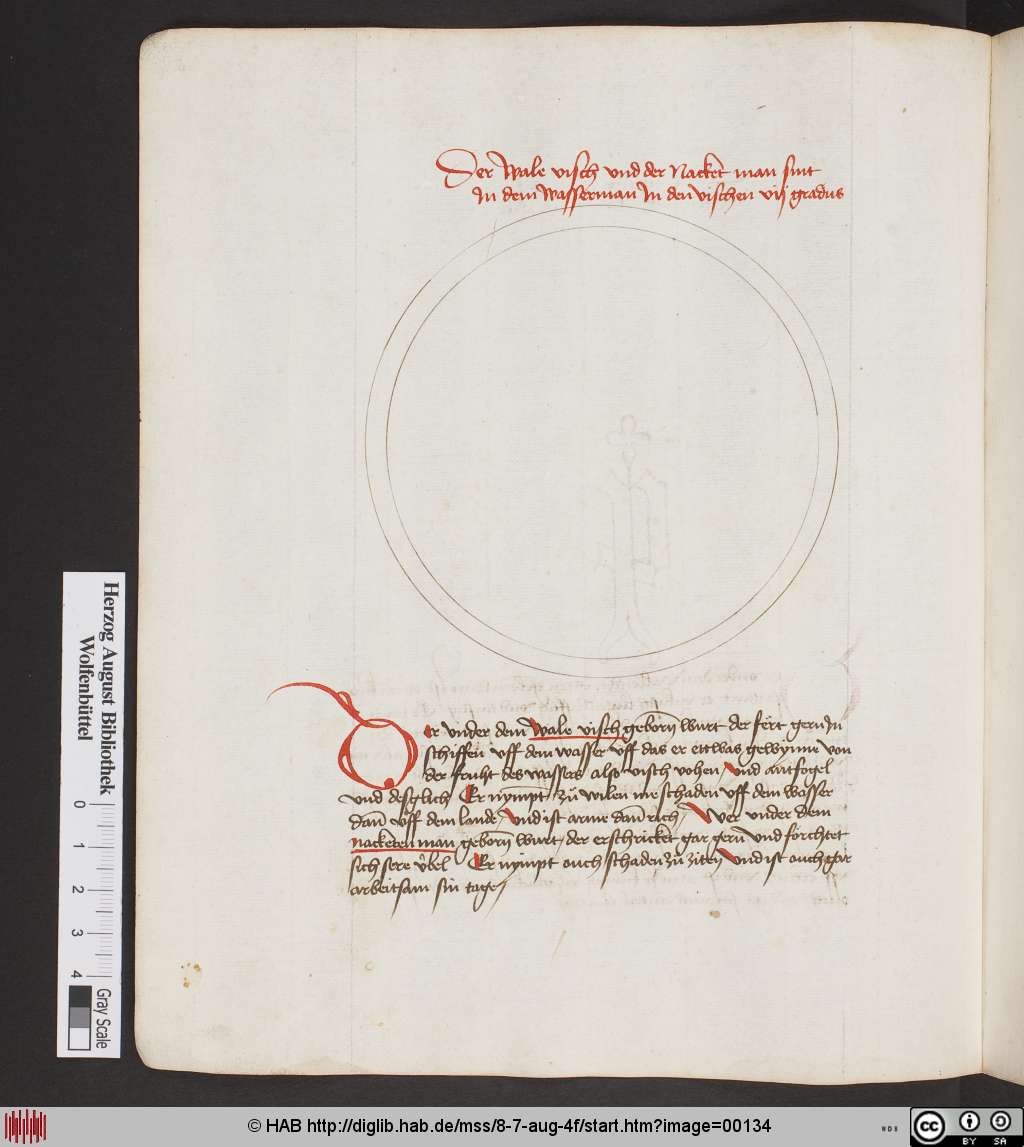 Der wale visch vnd der Nacket man sint
In dem wasserman In den vischen vij gradus
Der vnder dem wale visch geborn wurt der fert gern In
schiffen vff dem wasser vff das er ettwas gewynne von
der fruht des wassers also visch vohen / vnd antfogel
vnd desglich Er nympt zů wilen me schaden vff dem wasser
dann vff dem lande / vnd ist arme dann rich / Wer vnder dem
nacketen man geborn wurt / der erschricket gar gern vnd förchtet
sich sere v̊bel Er nympt ouch schaden zů ziten vnd ist ouch gar
arbeitsam sin tage /
Herzog August Bibliothek
Wolfenbüttel
0 1 2 3 4
Gray Scale
© HAB http://diglib.hab.de/mss/8-7-aug-4f/start.htm?image=00134
WDB
cc
BY SA